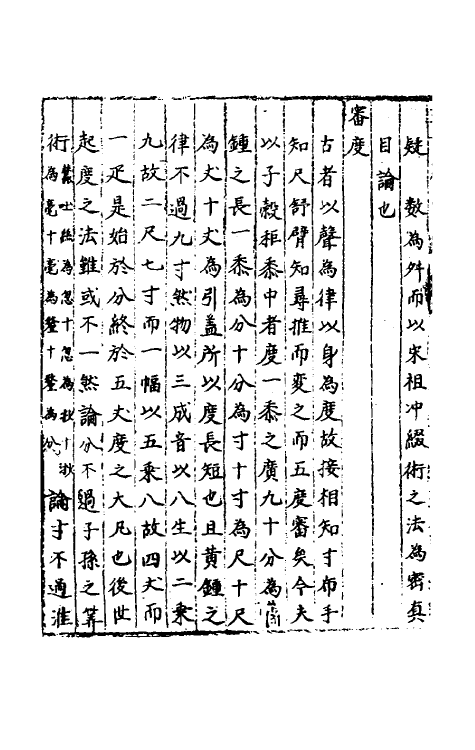 疑數為舛而以宋祖冲綴術之法為密真
目論也
審度
古者以聲為律以身為度故按相知寸布手
知尺舒臂知尋推而變之而五度審矣今夫
以子穀秬黍中者度一黍之廣九十分為黃
鍾之長一黍為分十分為寸十寸為尺十尺
為丈十丈為引蓋所以度長短也且黃鍾之
律不過九寸然物以三成音以八生以二乘
九故二尺七寸而一幅以五乘八故四丈而
一疋是始於分終於五丈度之大凡也後世
起度之法雖或不一然論分不過子孫之筭
術蠶吐絲為忽十忽為秒十秒為毫十毫為釐十釐為分論寸不過淮